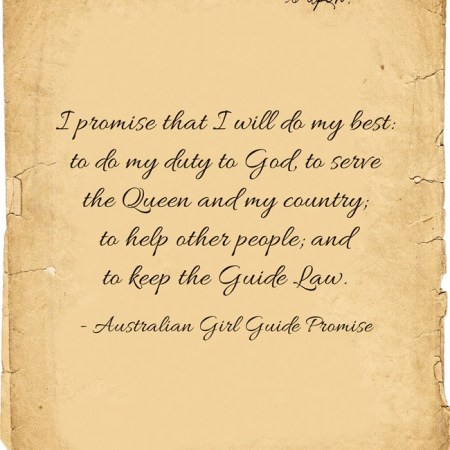 I promise that I will do my best:
to do my duty to God, to serve
the Queen and my country;
to help other people; and
to keep the Guide Law.
- Australian Girl Guide Promise